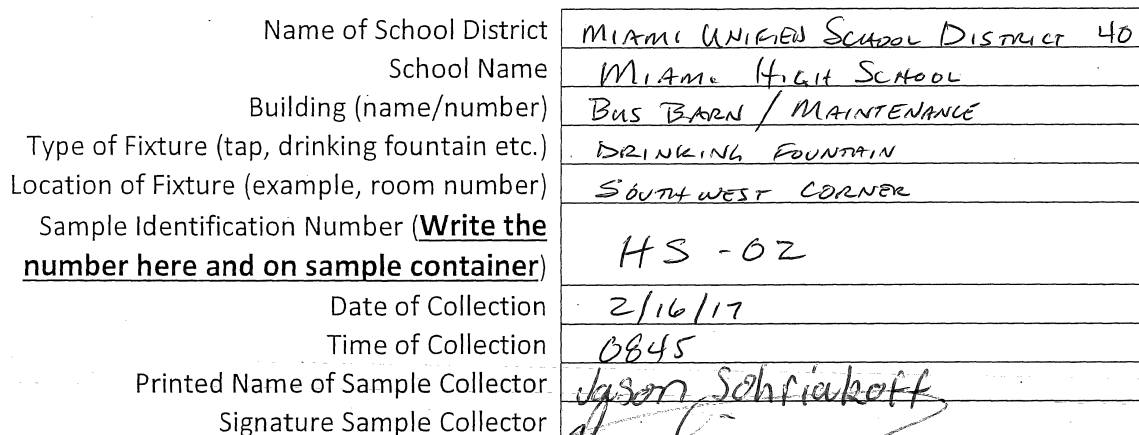 Name of School District MIAMI UNIFIED SCHOOL DISTRICT 40
School Name MIAMI HIGH SCHOOL
Building (name/number) BUS BARN / MAINTENANCE
Type of Fixture (tap, drinking fountain etc.) DRINKING FOUNTAIN
Location of Fixture (example, room number) SOUTHWEST CORNER
Sample Identification Number (Write the
number here and on sample container) HS-02
Date of Collection 2/16/17
Time of Collection 0845
Printed Name of Sample Collector Jason Sohriakoff
Signature Sample Collector